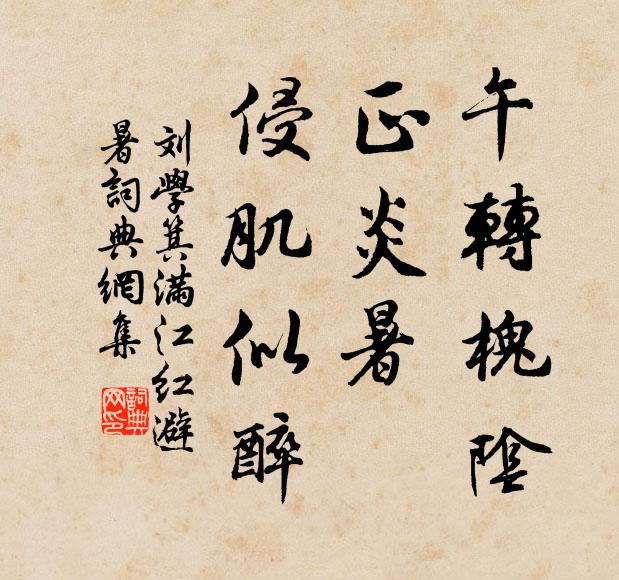 午轉槐陰
正炎暑
侵肌似醉
刘學箕满江红避
暑詞典網集
詞典网印